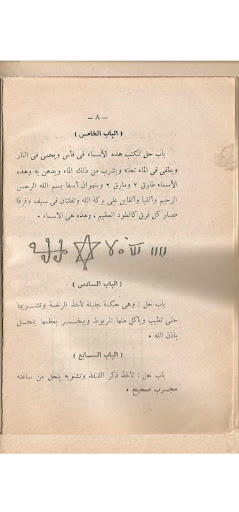 — ٨ —
( الباب الخامس )
باب حل تكتب هذه الأسماء فى فأس ويحمى فى النار
ويطفى فى الماء تحته ويشرب من ذلك الماء ويدهن به وهذه
الأسماء طارق ٢ ومارق ٢ وبنهوان أسفا بسم الله الرحمن
الرحيم وألقيا وألقاين على بركة الله وثقتان فى سيف وفرقا
فصار كل فرق كالطود العظيم ، وهذه هى الأسماء •
( الباب السادس )
باب حل : وهى حكمة جليلة تأخذ الرخمة وتشويها
حتى تطيب ويأكل منها المربوط ويتبخر بعظمها ينحل
باذن الله •
( الباب السابع )
باب حل : تأخذ ذكر القنفذ وتشويه ينحل من ساعته
مجرب صحيح •